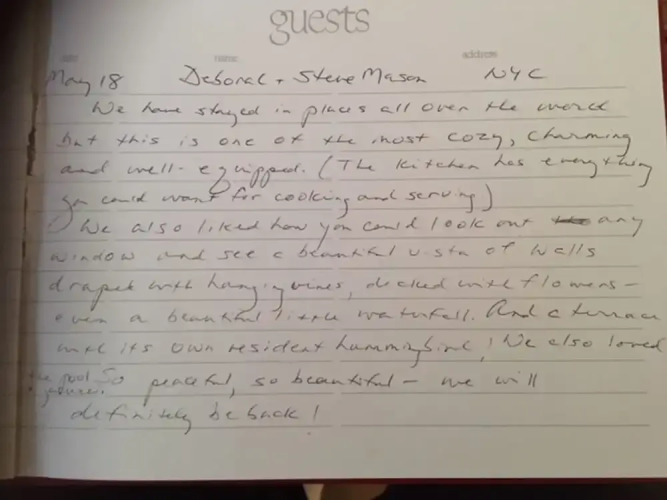 guests
date name address
May 18 Deborah + Steve Mason NYC
We have stayed in places all over the world
but this is one of the most cozy, charming
and well-equipped. (The kitchen has everything
you could want for cooking and serving)
We also liked how you could look out any
window and see a beautiful vista of walls
draped with hanging vines, decked with flowers -
even a beautiful little waterfall. And a terrace
with its own resident hummingbird! We also loved
the pool So peaceful, so beautiful - we will
definitely be back!